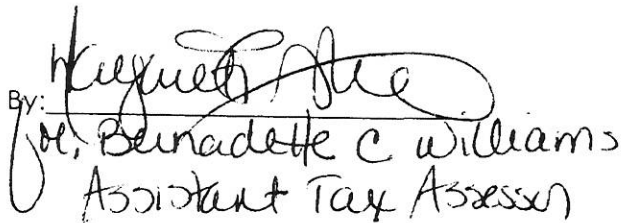 By:
for, Bernadette C Williams
Assistant Tax Assessor